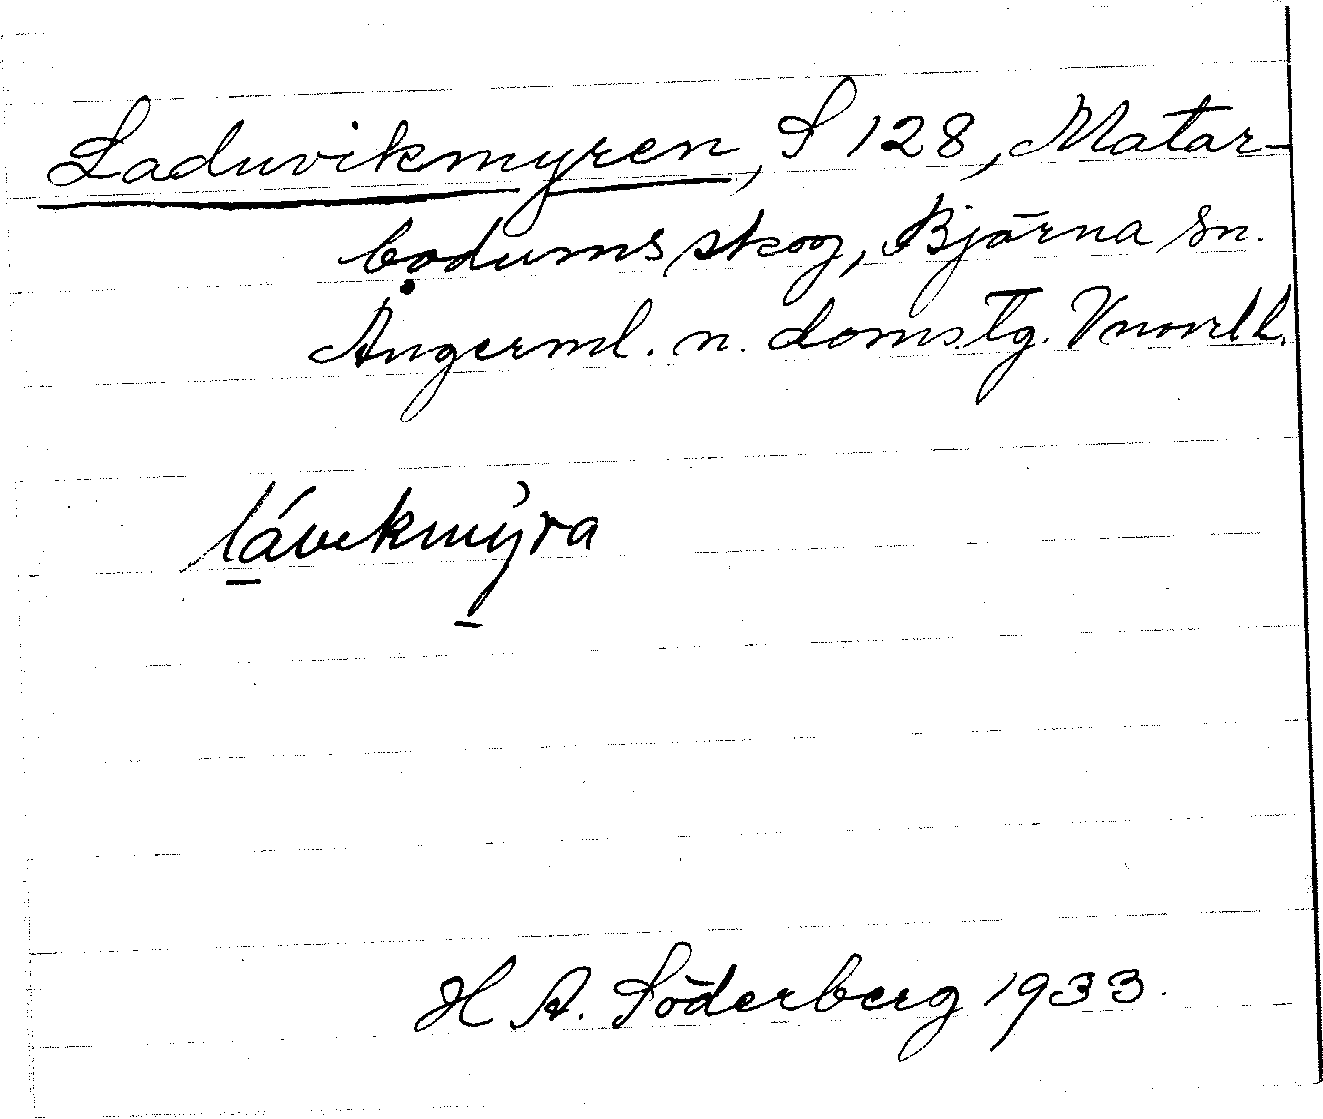 Laduvikmyren, S 128, Matar-
bodums skog, Björna sn.
Ångerml. n. doms.tg. Vnorrl l.
lávikmy̌ra
H A. Söderberg 1933.